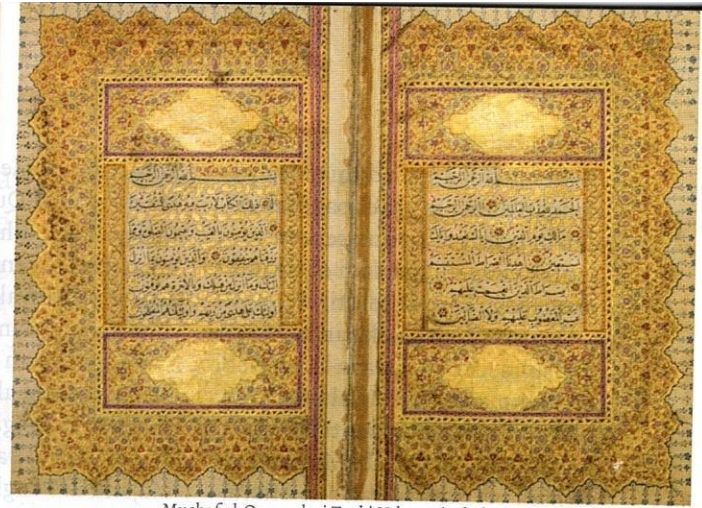 بسم الله الرحمن الرحيم
الحمد لله رب العالمين الرحمن الرحيم
مالك يوم الدين إياك نعبد وإياك
نستعين اهدنا الصراط المستقيم
صراط الذين أنعمت عليهم
غير المغضوب عليهم ولا الضالين
بسم الله الرحمن الرحيم
الم ذلك الكتاب لا ريب فيه هدى للمتقين
الذين يؤمنون بالغيب ويقيمون الصلوة ومما
رزقناهم ينفقون والذين يؤمنون بما أنزل
إليك وما أنزل من قبلك وبالآخرة هم يوقنون
أولئك على هدى من ربهم وأولئك هم المفلحون